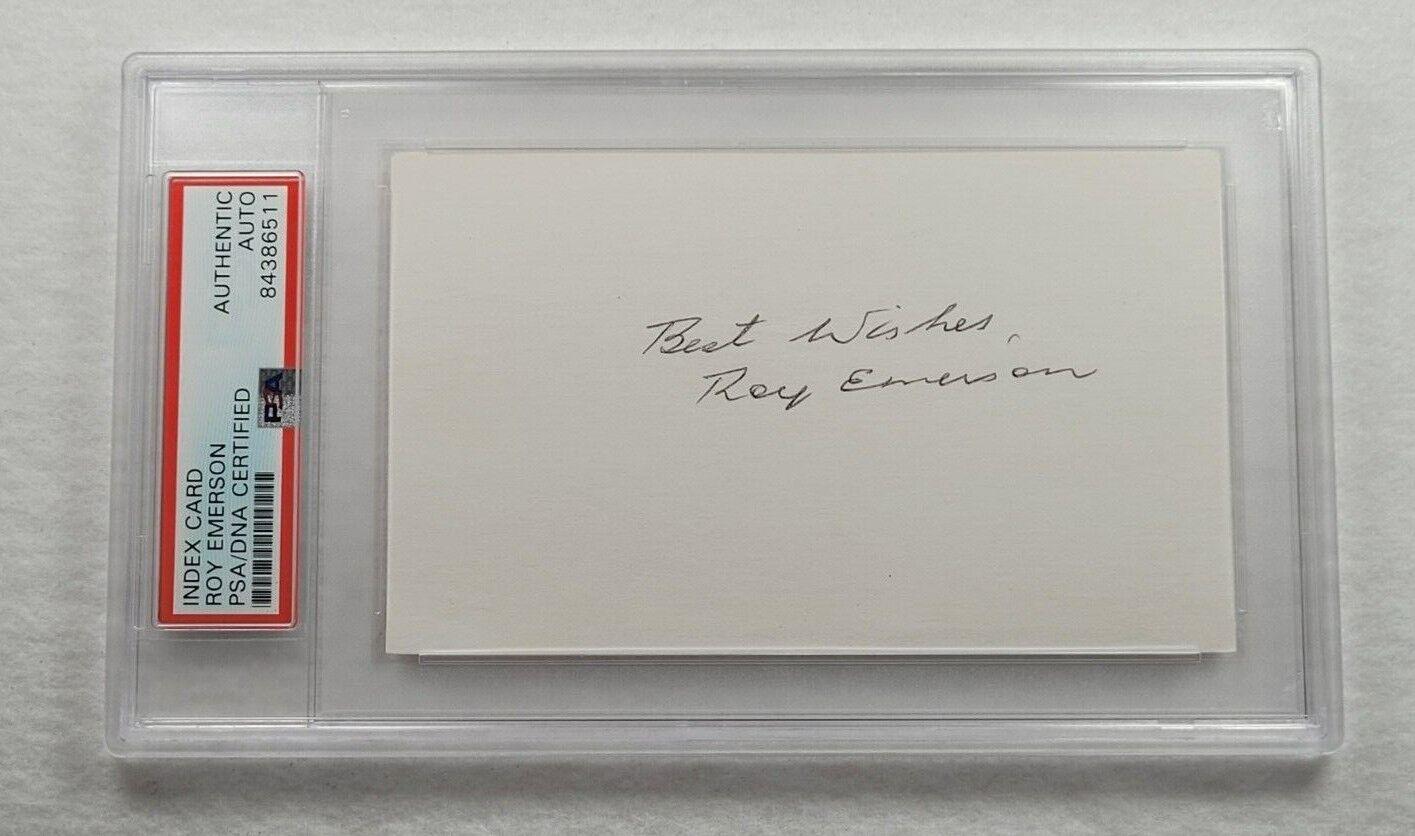 INDEX CARD
ROY EMERSON
PSA/DNA CERTIFIED
AUTHENTIC
AUTO
84386511
PSA
Best Wishes,
Roy Emerson